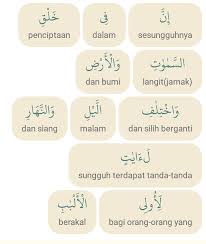 إِنَّ فِى خَلْقِ
sesungguhnya dalam penciptaan
السَّمٰوٰتِ وَالْاَرْضِ
langit(jamak) dan bumi
وَاخْتِلٰفِ الَّيْلِ وَالنَّهَارِ
dan silih berganti malam dan siang
لَءَايٰتٍ
sungguh terdapat tanda-tanda
لِّأُولِى الْأَلْبٰبِ
bagi orang-orang yang berakal